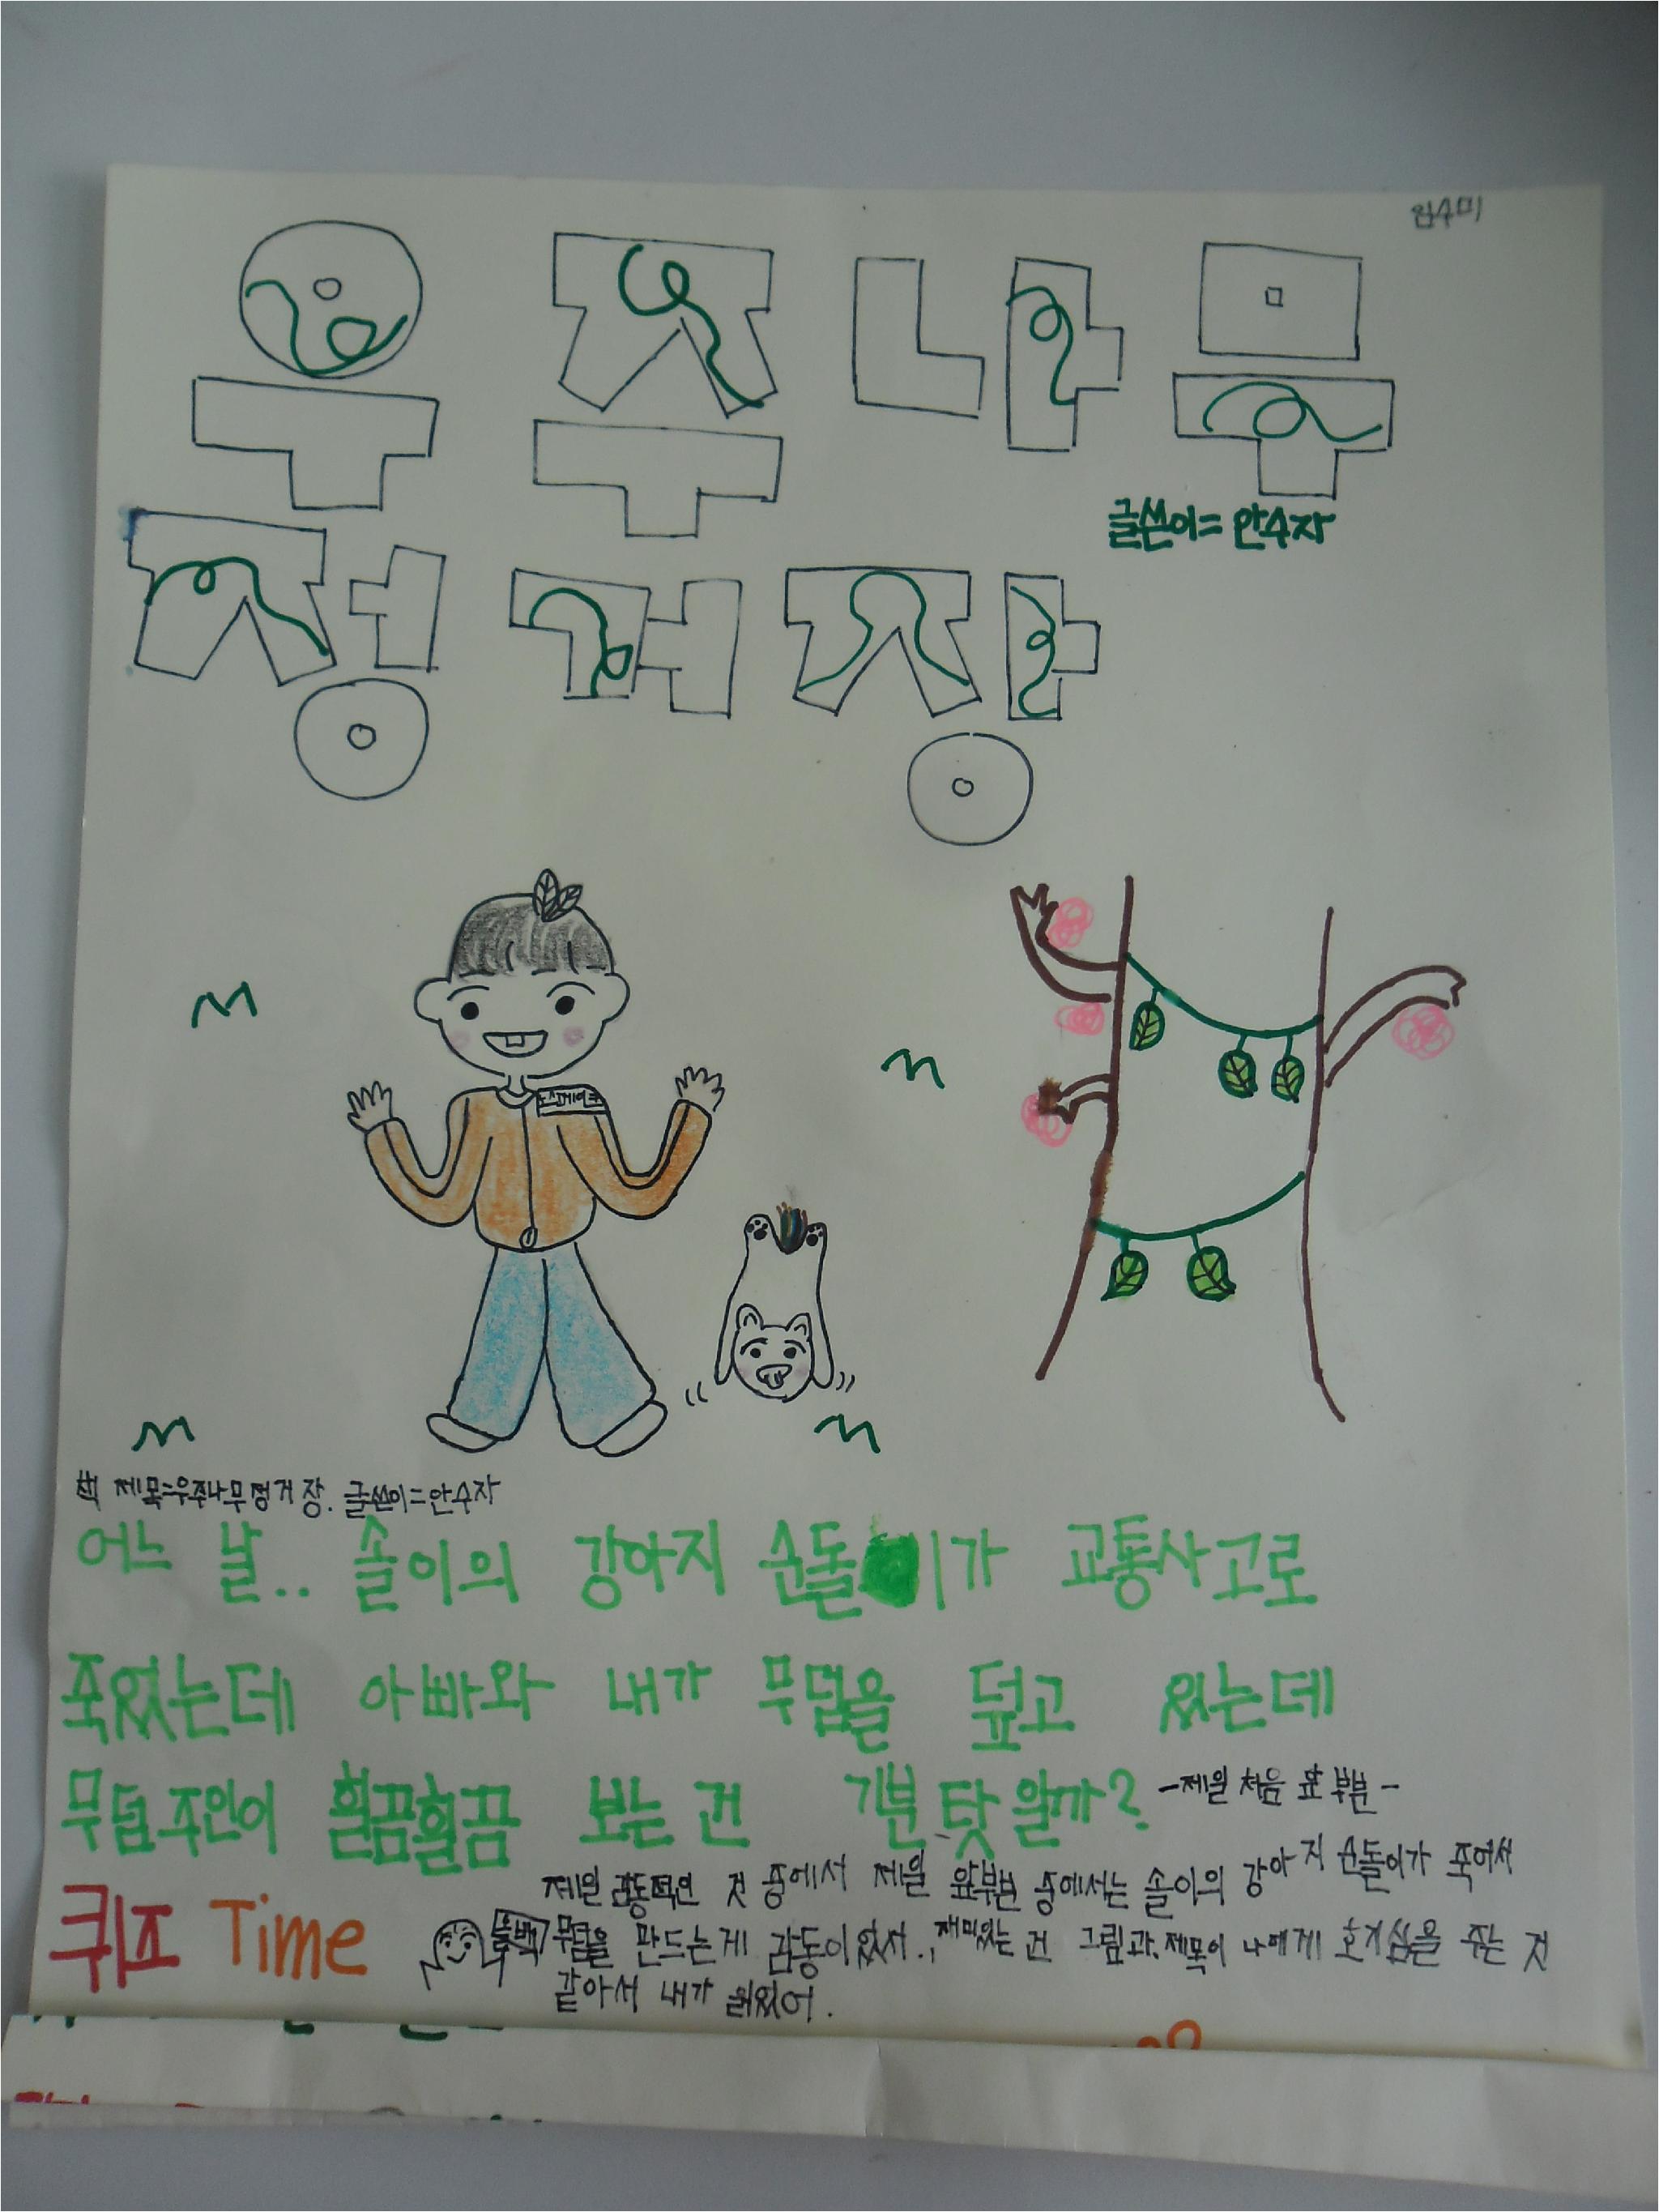 임수미
우주나무
글쓴이= 안수자
정거장
노스페이스
책 제목=우주나무정거장. 글쓴이=안수자
어느 날.. 솔이의 강아지 순돌이가 교통사고로
죽었는데 아빠와 내가 무덤을 덮고 있는데
무덤주인이 힐끔힐끔 보는 건 기분 탓일까?
-제일 처음 앞 부분-
제일 감동적인 것 중에서 제일 앞부분 중에서는 솔이의 강아지 순돌이가 죽어서
무덤을 만드는게 감동이었서., 재밌는 건 그림과. 제목이 나에게 호기심을 주는 것
같아서 내가 읽었어.
퀴즈 Time